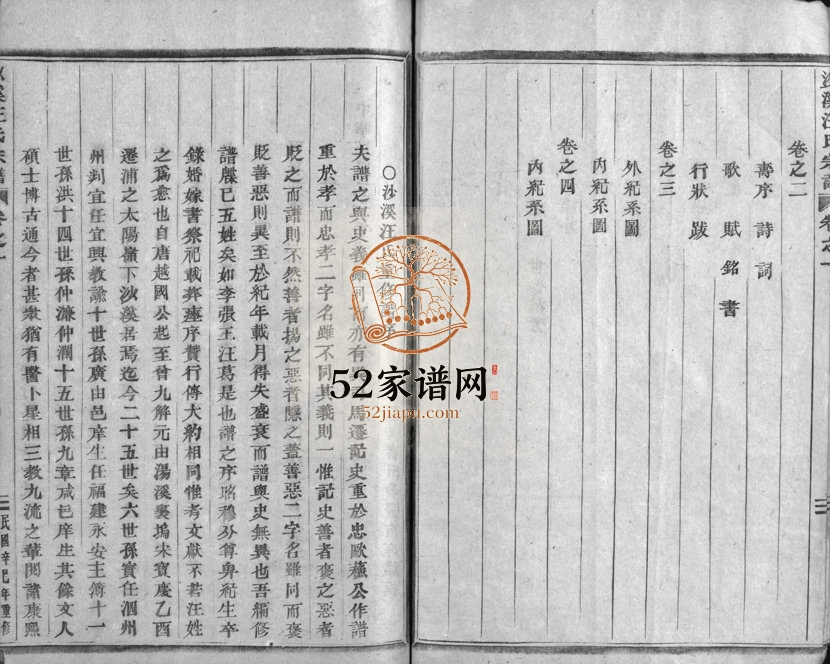 沙溪汪氏宗譜 卷之一
三
卷之二
壽序 詩 詞
歌 賦 銘 書
行狀 跋
卷之三
外紀系圖
內紀系圖
卷之四
內紀系圖
〇沙溪汪氏重修譜序
夫譜之與史義雖同而亦有 馬遷記史重於忠歐蘇公作譜
重於孝而忠孝二字名雖不同其義則一惟記史善者褒之惡者
貶之而譜則不然善者揚之惡者隱之蓋善惡二字名雖同而褒
貶善惡則異至於紀年載月得失盛衰而譜與史無異也吾續修
譜牒已五姓矣如李張王汪葛是也譜之序昭穆分尊卑紀生卒
錄婚嫁書祭祀載葬塋序贊行傳大約相同惟考文獻不若汪姓
之爲愈也自唐越國公起至曾九解元由湯溪裏塢宋寶慶乙酉
遷浦之太陽嶺下沙溪居焉迄今二十五世矣六世孫實任泗州
州判宜任宜興教諭十世孫廣由邑庠生任福建永安主簿十一
世孫洪十四世孫仲濂仲瀾十五世孫九章咸邑庠生其餘文人
碩士博古通今者甚眾猶有醫卜星相三教九流之輩閱諸康熙
汪氏宗譜 卷之一
三 民國辛巳年重修
52家谱网
52jiapu.com